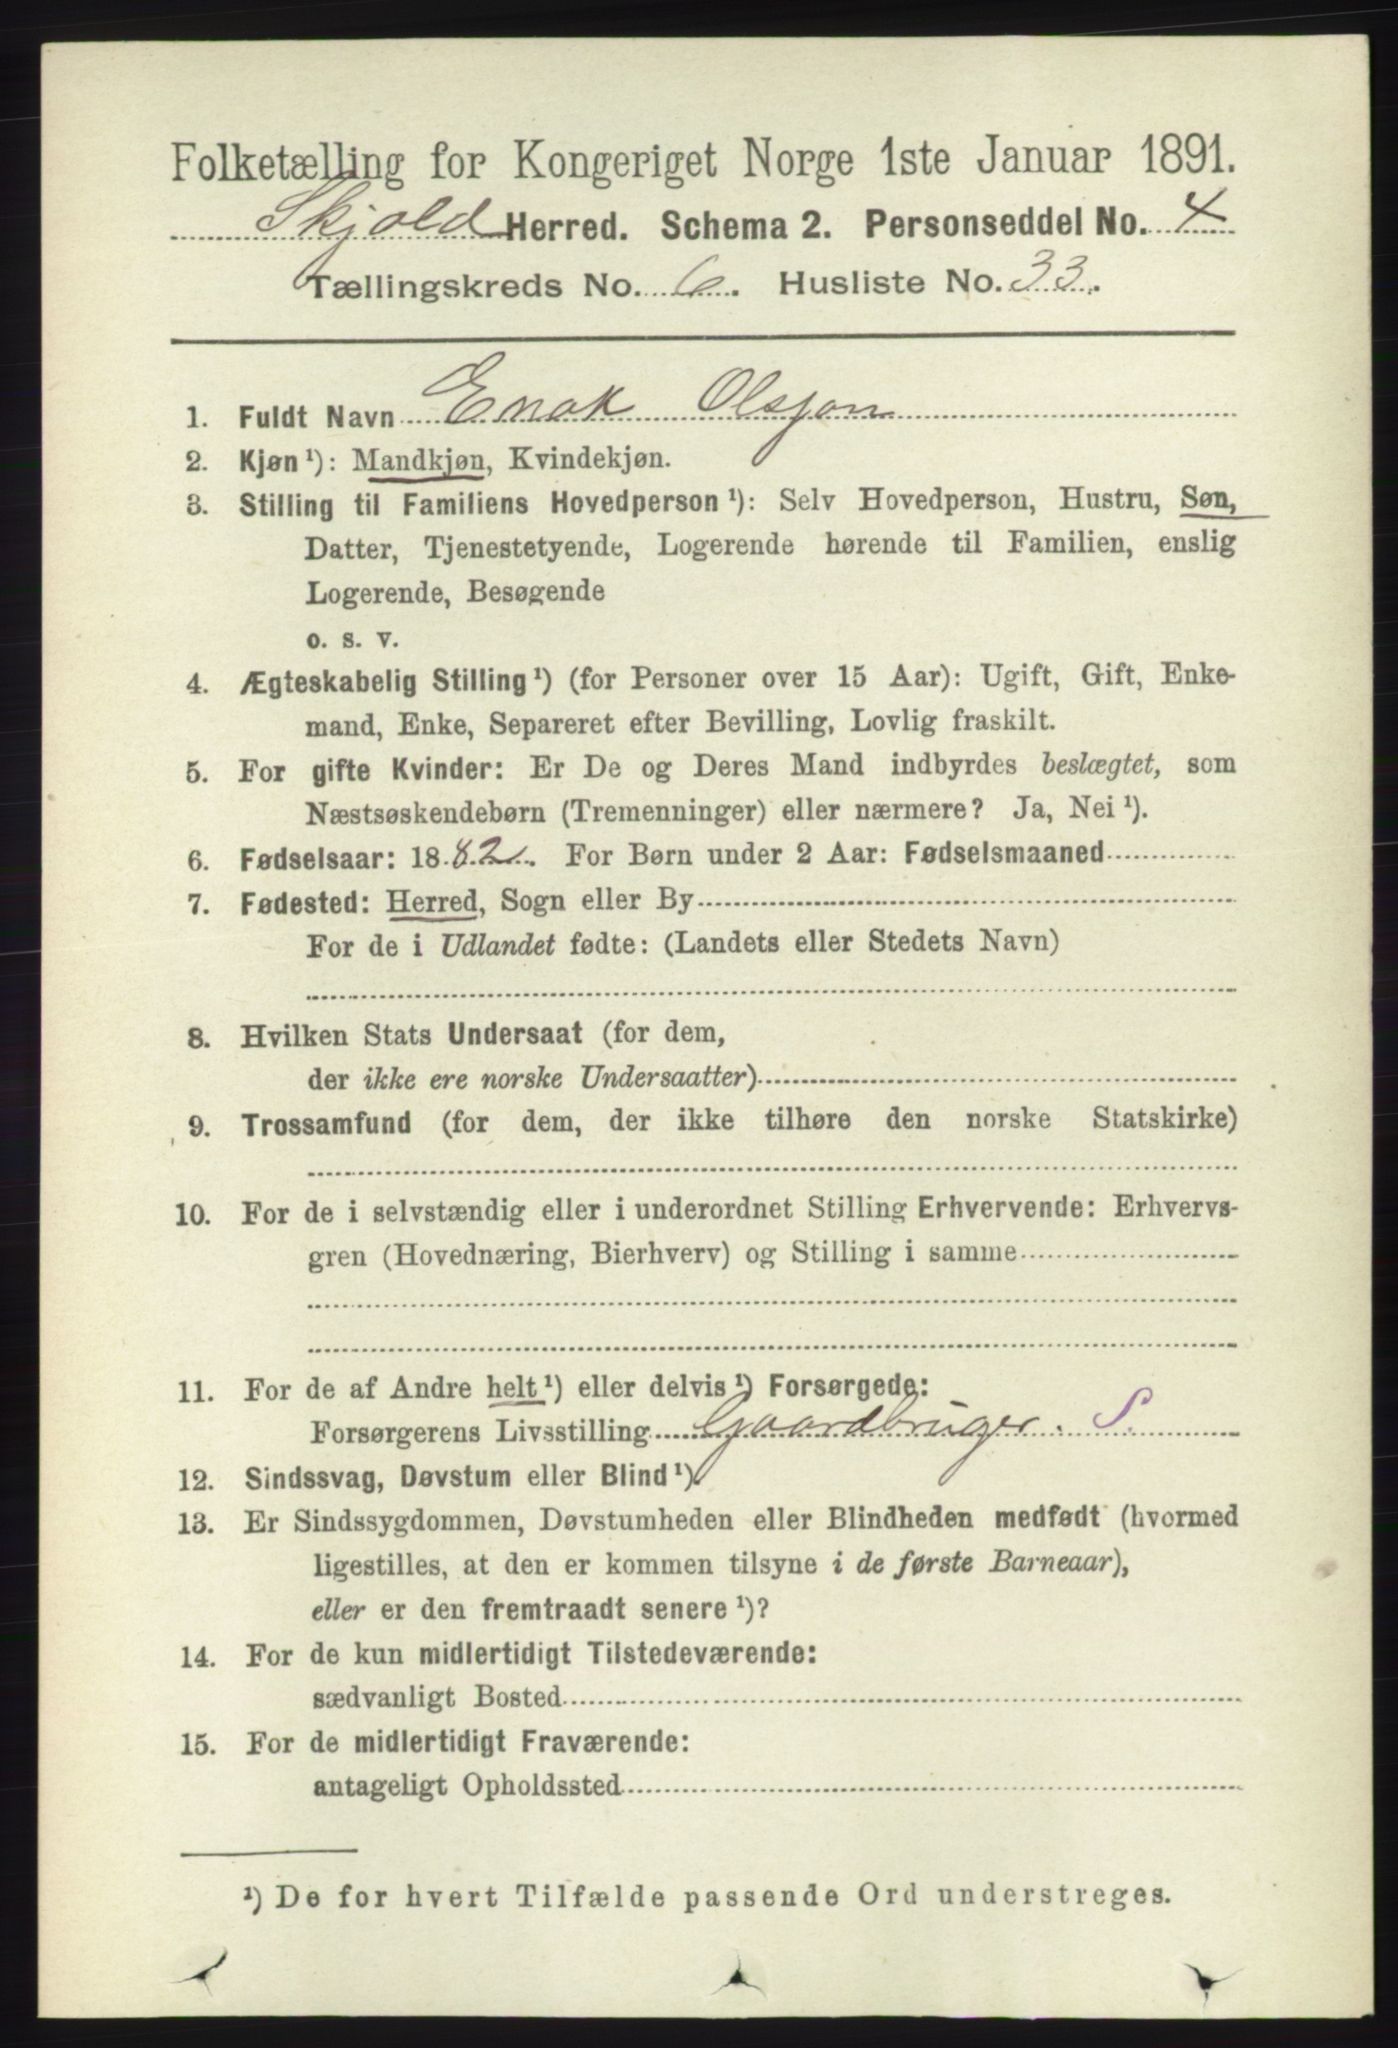 Folketælling for Kongeriget Norge 1ste Januar 1891.
Skjold Herred. Schema 2. Personseddel No. 4
Tællingskreds No. 6. Husliste No. 33.
1. Fuldt Navn Enok Olsson
2. Kjøn ¹): Mandkjøn, Kvindekjøn.
3. Stilling til Familiens Hovedperson ¹): Selv Hovedperson, Hustru, Søn,
Datter, Tjenestetyende, Logerende hørende til Familien, enslig
Logerende, Besøgende
o. s. v.
4. Ægteskabelig Stilling ¹) (for Personer over 15 Aar): Ugift, Gift, Enke-
mand, Enke, Separeret efter Bevilling, Lovlig fraskilt.
5. For gifte Kvinder: Er De og Deres Mand indbyrdes beslægtet, som
Næstsøskendebørn (Tremenninger) eller nærmere? Ja, Nei ¹).
6. Fødselsaar: 1882. For Børn under 2 Aar: Fødselsmaaned
7. Fødested: Herred, Sogn eller By
For de i Udlandet fødte: (Landets eller Stedets Navn)
8. Hvilken Stats Undersaat (for dem,
der ikke ere norske Undersaatter)
9. Trossamfund (for dem, der ikke tilhøre den norske Statskirke)
10. For de i selvstændig eller i underordnet Stilling Erhvervende: Erhvervs-
gren (Hovednæring, Bierhverv) og Stilling i samme
11. For de af Andre helt ¹) eller delvis ¹) Forsørgede:
Forsørgerens Livsstilling Gaardbruger. S.
12. Sindssvag, Døvstum eller Blind ¹).
13. Er Sindssygdommen, Døvstumheden eller Blindheden medfødt (hvormed
ligestilles, at den er kommen tilsyne i de første Barneaar),
eller er den fremtraadt senere ¹)?
14. For de kun midlertidigt Tilstedeværende:
sædvanligt Bosted
15. For de midlertidigt Fraværende:
antageligt Opholdssted
¹) De for hvert Tilfælde passende Ord understreges.